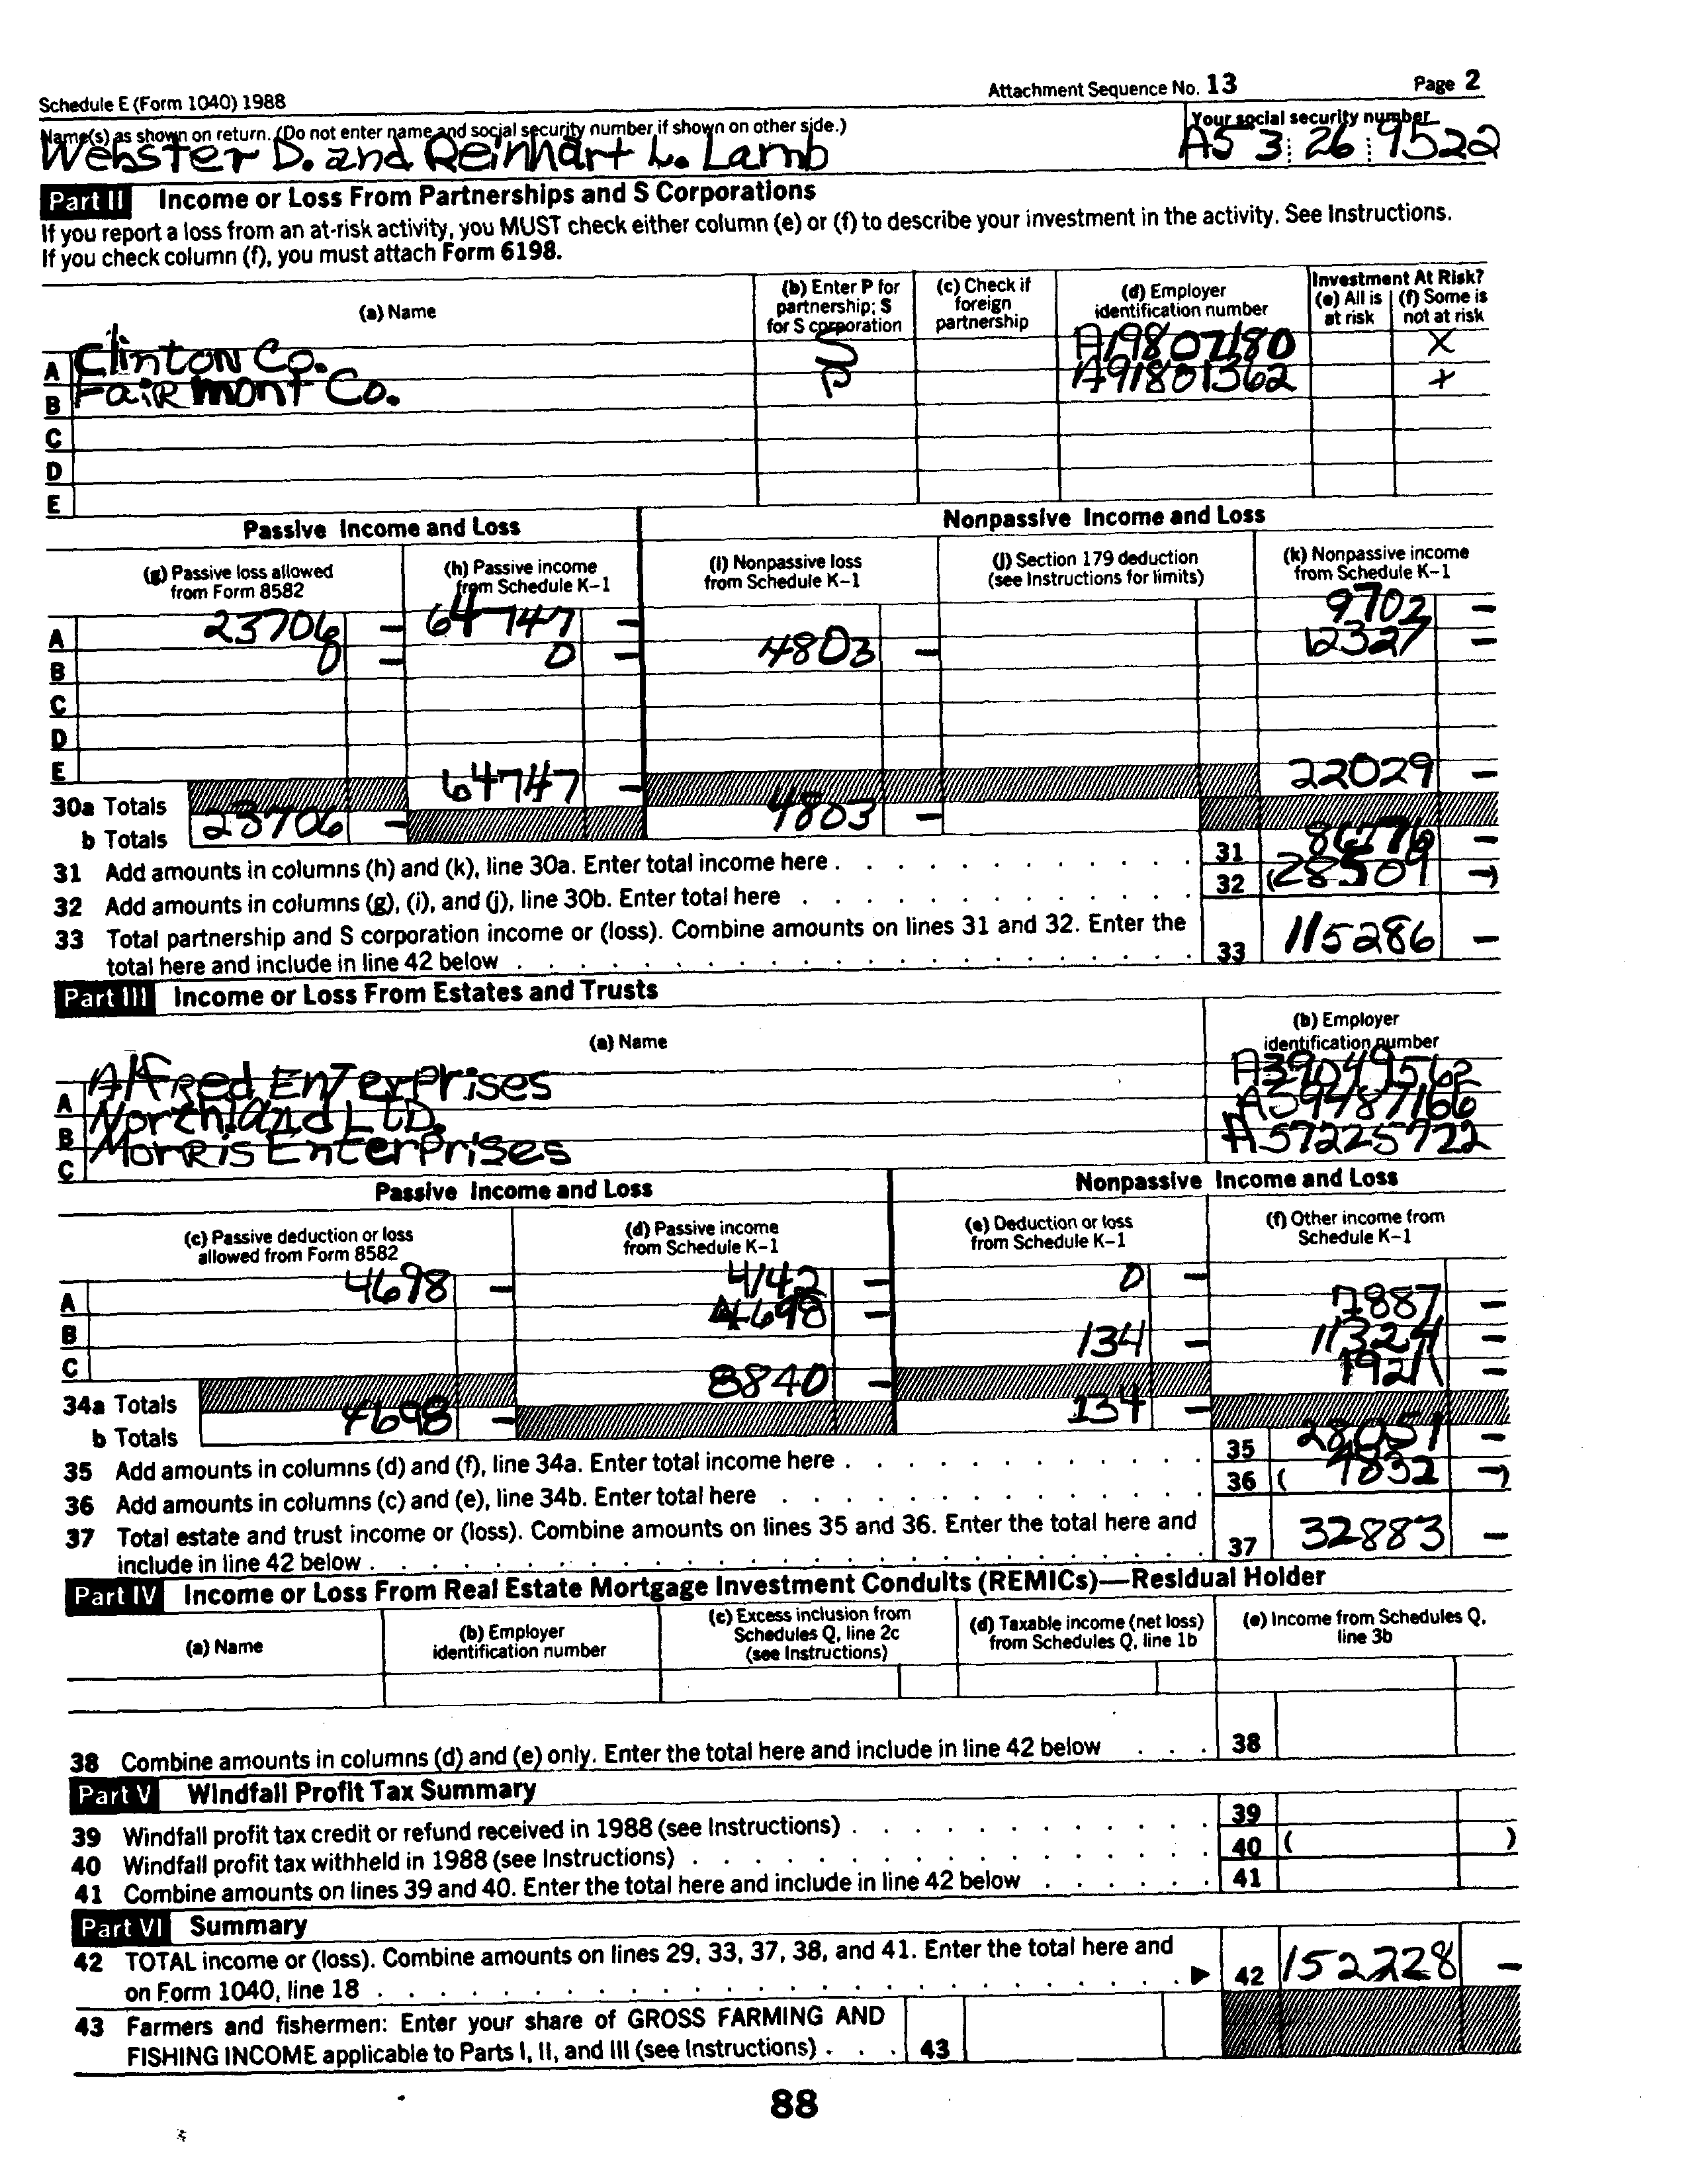 Schedule E (Form 1040) 1988 Attachment Sequence No. 13 Page 2
Name(s) as shown on return. (Do not enter name and social security number if shown on other side.) Your social security number
Webster D. and Reinhart L. Lamb A53 26 9522
Part II Income or Loss From Partnerships and S Corporations
If you report a loss from an at-risk activity, you MUST check either column (e) or (f) to describe your investment in the activity. See Instructions.
If you check column (f), you must attach Form 6198.
(a) Name (b) Enter P for partnership; S for S corporation (c) Check if foreign partnership (d) Employer identification number Investment At Risk? (e) All is at risk (f) Some is not at risk
A Clinton Co. S A19807180 X
B Fairmont Co. P A91801362 X
C
D
E
Passive Income and Loss Nonpassive Income and Loss
(g) Passive loss allowed from Form 8582 (h) Passive income from Schedule K-1 (i) Nonpassive loss from Schedule K-1 (j) Section 179 deduction (see Instructions for limits) (k) Nonpassive income from Schedule K-1
A 23706 — 64747 — 9702 —
B 0 — 0 — 4803 — 12327 —
C
D
E
30a Totals 64747 — 22029 —
b Totals 23706 — 4803 —
31 Add amounts in columns (h) and (k), line 30a. Enter total income here 31 86776 —
32 Add amounts in columns (g), (i), and (j), line 30b. Enter total here 32 (28509 —)
33 Total partnership and S corporation income or (loss). Combine amounts on lines 31 and 32. Enter the
total here and include in line 42 below 33 115286 —
Part III Income or Loss From Estates and Trusts
(a) Name (b) Employer identification number
A Alfred Enterprises A39049562
B Northland LtD. A59487166
C Morris Enterprises A57225722
Passive Income and Loss Nonpassive Income and Loss
(c) Passive deduction or loss allowed from Form 8582 (d) Passive income from Schedule K-1 (e) Deduction or loss from Schedule K-1 (f) Other income from Schedule K-1
A 4698 — 4142 — 0 — 7887 —
B 4698 — 134 — 11324 —
C 1921 —
34a Totals 8840 —
b Totals 4698 — 134 —
35 Add amounts in columns (d) and (f), line 34a. Enter total income here 35 28051 —
36 Add amounts in columns (c) and (e), line 34b. Enter total here 36 ( 4832 —)
37 Total estate and trust income or (loss). Combine amounts on lines 35 and 36. Enter the total here and
include in line 42 below 37 32883 —
Part IV Income or Loss From Real Estate Mortgage Investment Conduits (REMICs)—Residual Holder
(a) Name (b) Employer identification number (c) Excess inclusion from Schedules Q, line 2c (see Instructions) (d) Taxable income (net loss) from Schedules Q, line 1b (e) Income from Schedules Q, line 3b
38 Combine amounts in columns (d) and (e) only. Enter the total here and include in line 42 below 38
Part V Windfall Profit Tax Summary
39 Windfall profit tax credit or refund received in 1988 (see Instructions) 39
40 Windfall profit tax withheld in 1988 (see Instructions) 40 ( )
41 Combine amounts on lines 39 and 40. Enter the total here and include in line 42 below 41
Part VI Summary
42 TOTAL income or (loss). Combine amounts on lines 29, 33, 37, 38, and 41. Enter the total here and
on Form 1040, line 18 42 152228 —
43 Farmers and fishermen: Enter your share of GROSS FARMING AND
FISHING INCOME applicable to Parts I, II, and III (see Instructions) 43
88